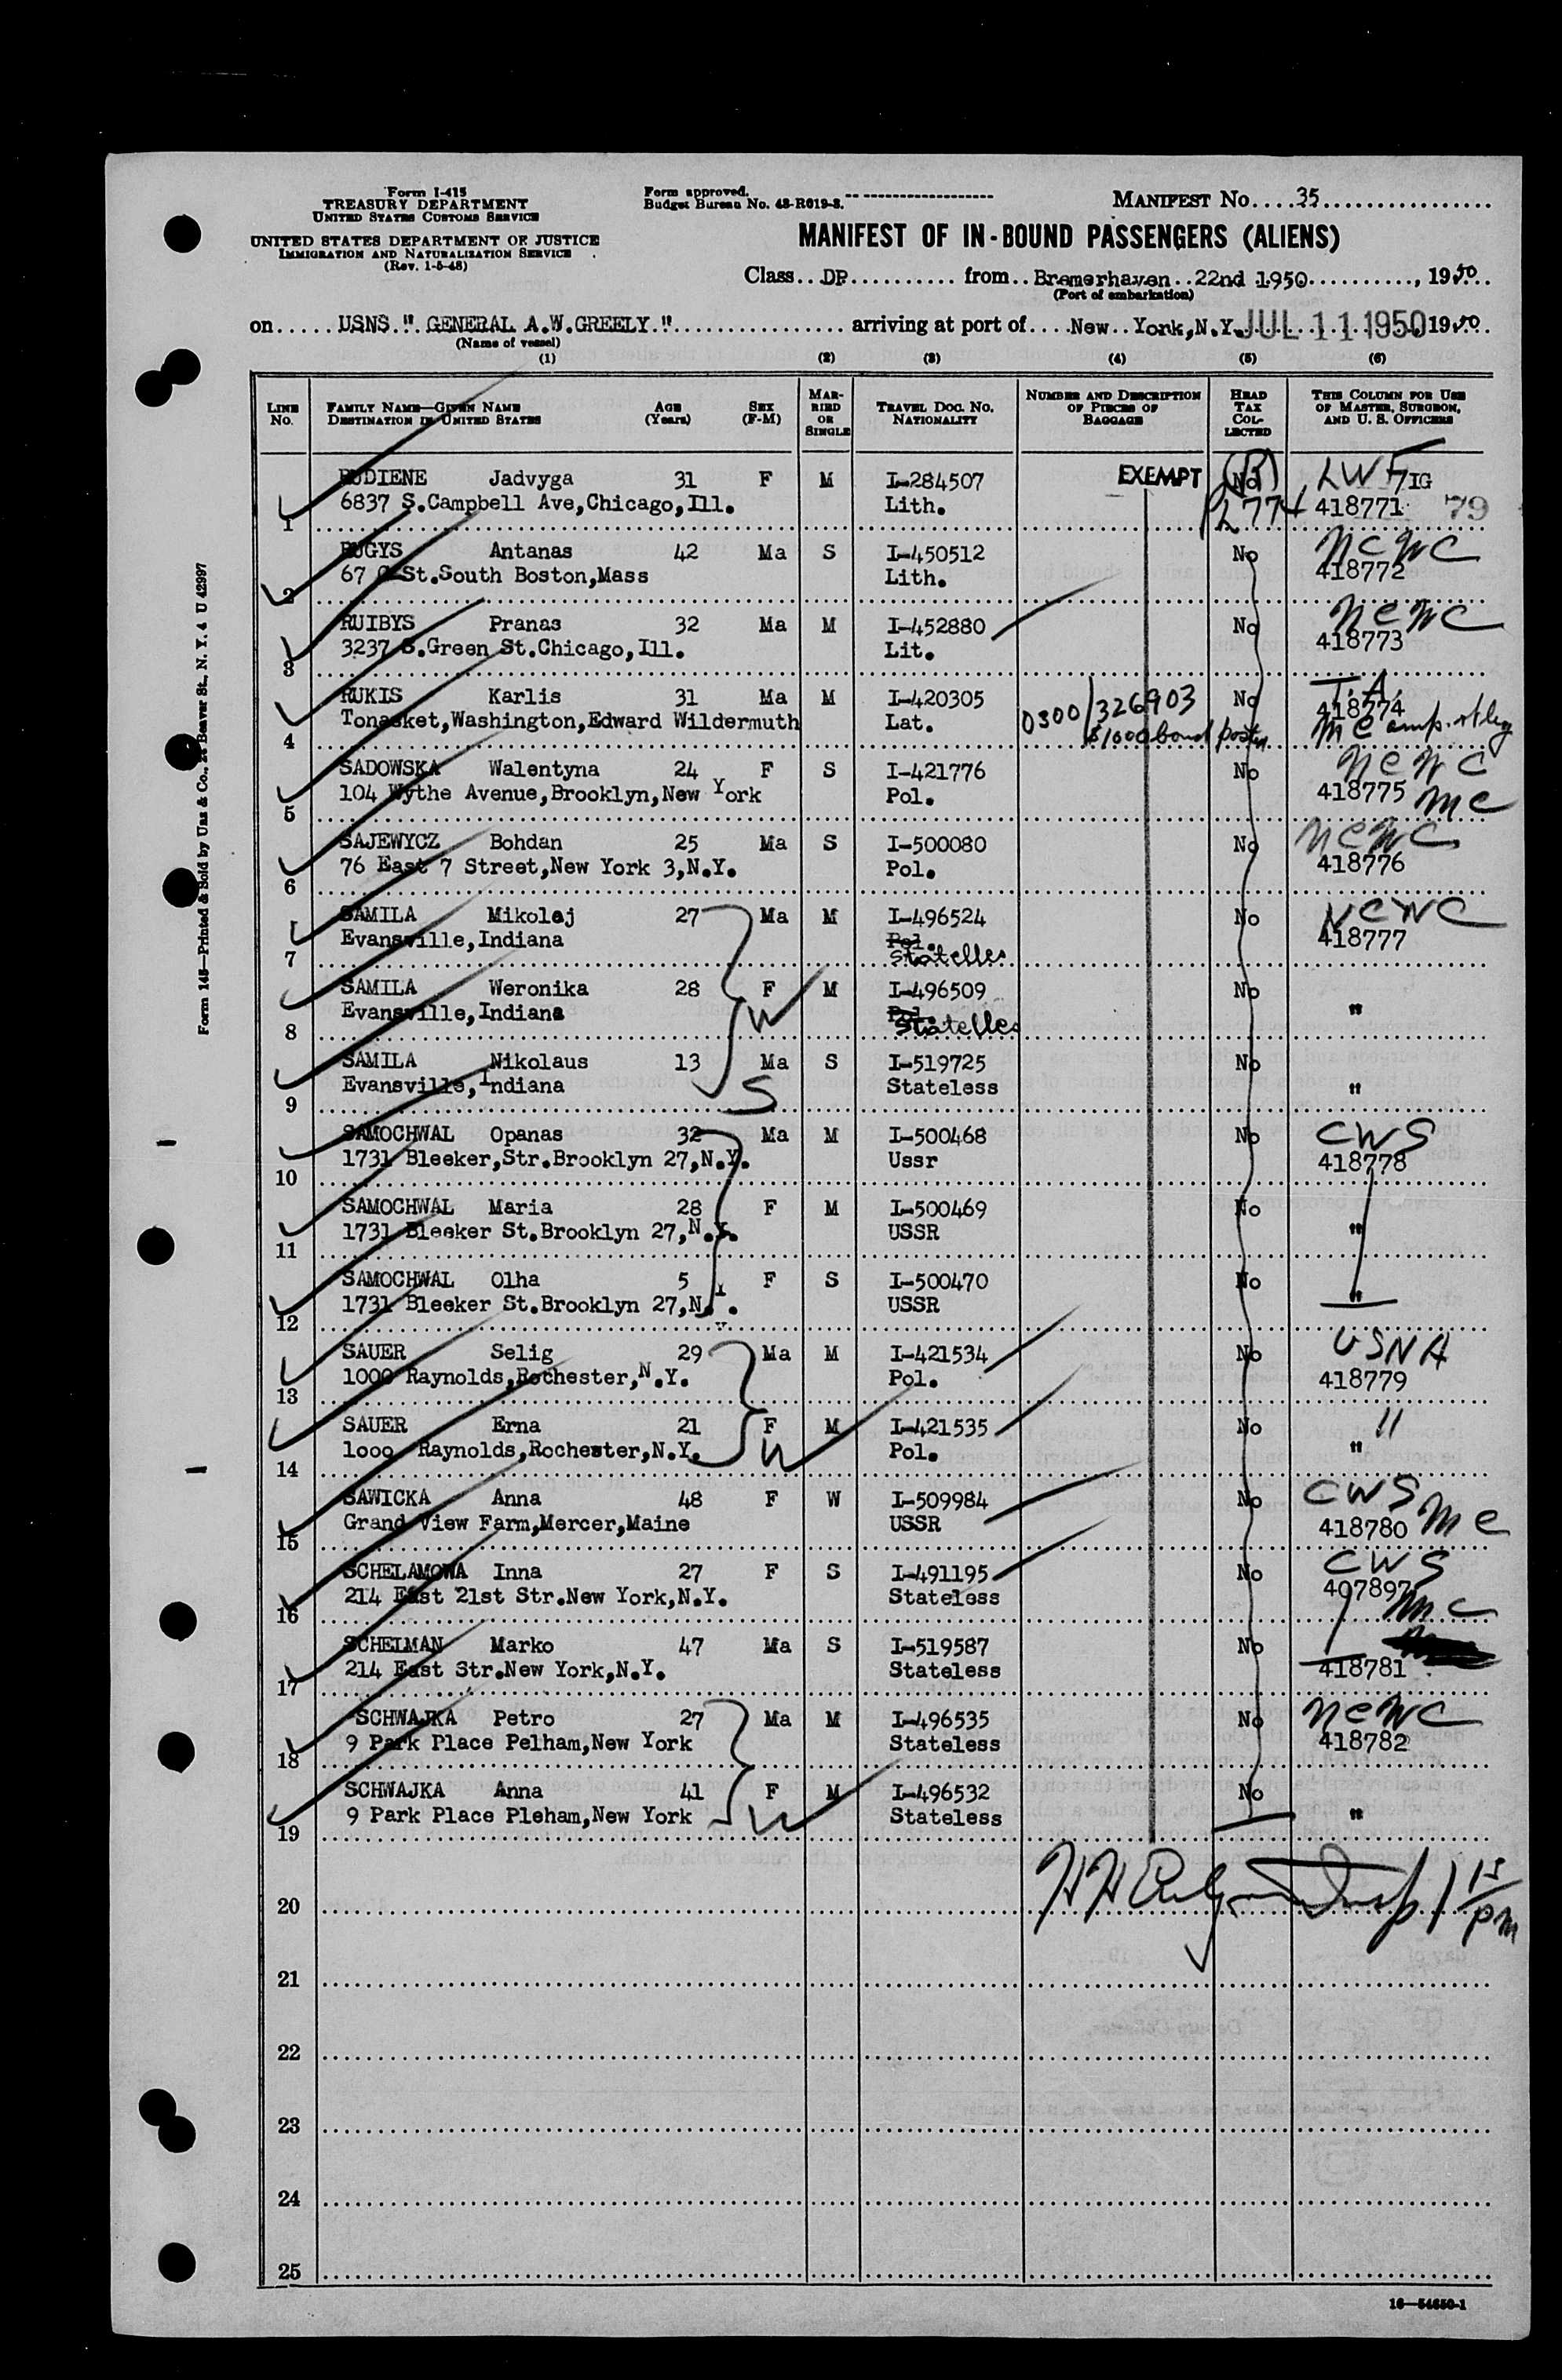 Form I-415
TREASURY DEPARTMENT
UNITED STATES CUSTOMS SERVICE
UNITED STATES DEPARTMENT OF JUSTICE
IMMIGRATION AND NATURALIZATION SERVICE
(Rev. 1-5-48)
Form approved.
Budget Bureau No. 43-R019-3.
MANIFEST No....35
MANIFEST OF IN-BOUND PASSENGERS (ALIENS)
Class...DP........... from...Bremerhaven..22nd 1950..........., 1950
(Port of embarkation)
on......USNS.". GENERAL A.W.GREELY."................. arriving at port of....New..York,N.Y. JUL 11 1950 1950
(Name of vessel)
(1) (2) (3) (4) (5) (6)
LINE No. FAMILY NAME—GIVEN NAME DESTINATION IN UNITED STATES AGE (Years) SEX (F-M) MARRIED OR SINGLE TRAVEL DOC. NO. NATIONALITY NUMBER AND DESCRIPTION OF PIECES OF BAGGAGE HEAD TAX COLLECTED THIS COLUMN FOR USE OF MASTER, SURGEON, AND U. S. OFFICERS
RUDIENE Jadvyga 31 F M I-284507 EXEMPT No LWF 7IG
1 6837 S.Campbell Ave,Chicago,Ill. Lith. 2774 418771 79
RUGYS Antanas 42 Ma S I-450512 No NCWC
2 67 C St.South Boston,Mass Lith. 418772
RUIBYS Pranas 32 Ma M I-452880 No NCWC
3 3237 S.Green St.Chicago,Ill. Lit. 418773
RUKIS Karlis 31 Ma M I-420305 0300/326903 No T.A.
4 Tonasket,Washington,Edward Wildermuth Lat. $1000 bond posted 418774 MC amp.
SADOWSKA Walentyna 24 F S I-421776 No NCWC
5 104 Wythe Avenue,Brooklyn,New York Pol. 418775 MC
SAJEWYCZ Bohdan 25 Ma S I-500080 No NCWC
6 76 East 7 Street,New York 3,N.Y. Pol. 418776
SAMILA Mikolej 27 Ma M I-496524 No NCWC
7 Evansville,Indiana Pol. Stateless 418777
SAMILA Weronika 28 F M I-496509 No
8 Evansville,Indiana W Pol. Stateless "
SAMILA Nikolaus 13 Ma S I-519725 No
9 Evansville,Indiana S Stateless "
SAMOCHWAL Opanas 32 Ma M I-500468 No CWS
10 1731 Bleeker,Str.Brooklyn 27,N.Y. Ussr 418778
SAMOCHWAL Maria 28 F M I-500469 No
11 1731 Bleeker St.Brooklyn 27,N.Y. USSR "
SAMOCHWAL Olha 5 F S I-500470 No
12 1731 Bleeker St.Brooklyn 27,N.Y. USSR "
SAUER Selig 29 Ma M I-421534 No USNA
13 1000 Raynolds,Rochester,N.Y. Pol. 418779
SAUER Erna 21 F M I-421535 No "
14 1000 Raynolds,Rochester,N.Y. W Pol. "
SAWICKA Anna 48 F W I-509984 No CWS
15 Grand View Farm,Mercer,Maine USSR 418780 MC
SCHELAMOWA Inna 27 F S I-491195 No CWS
16 214 East 21st Str.New York,N.Y. Stateless 407897 MC
SCHELMAN Marko 47 Ma S I-519587 No
17 214 East Str.New York,N.Y. Stateless 418781
SCHWAJKA Petro 27 Ma M I-496535 No NCWC
18 9 Park Place Pelham,New York Stateless 418782
SCHWAJKA Anna 41 F M I-496532 No
19 9 Park Place Pleham,New York W Stateless "
20 1 15/pm
21
22
23
24
25
16—54650-1
Form 145—Printed & Sold by Unz & Co., 24 Beaver St., N. Y. 4 U 42997